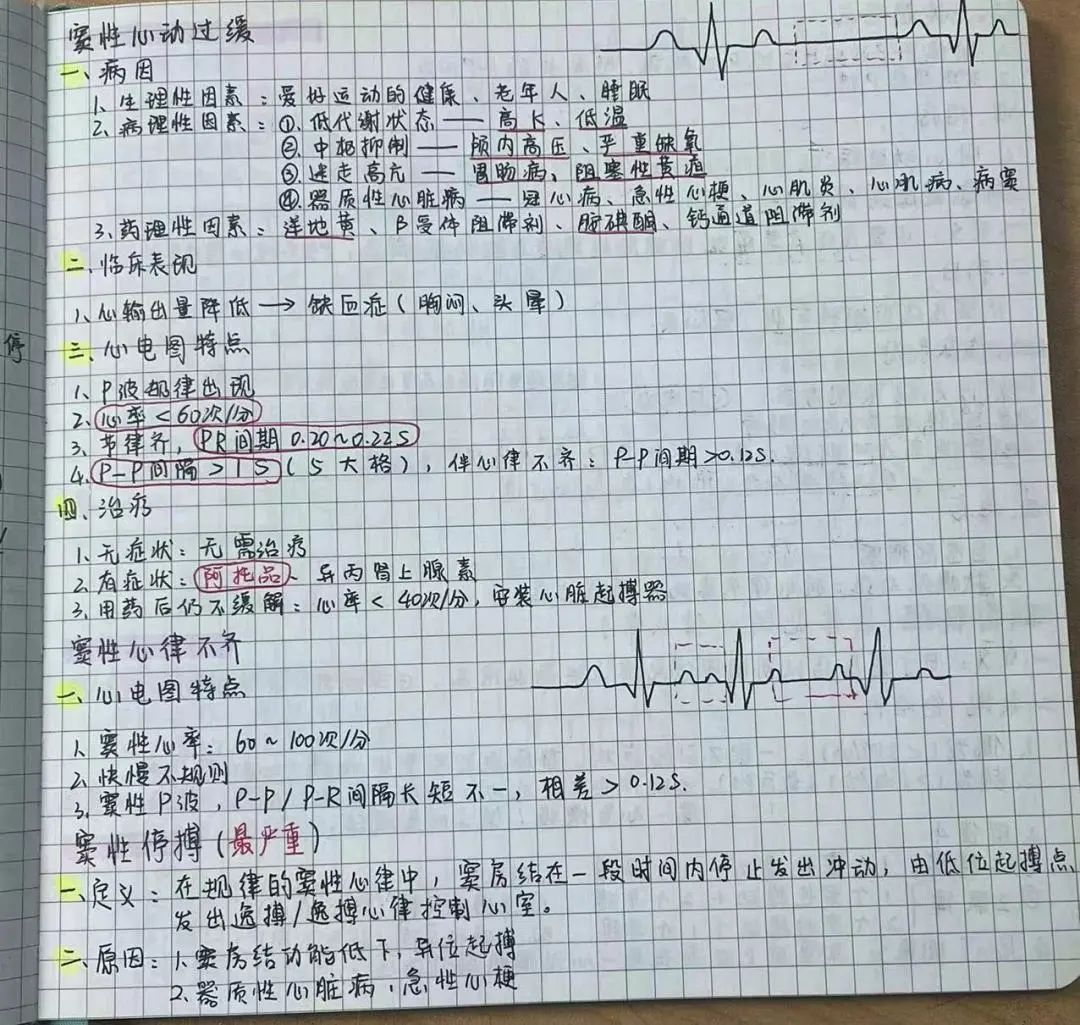 窦性心动过缓
一、病因
1、生理性因素：爱好运动的健康、老年人、睡眠
2、病理性因素：①、低代谢状态——高K、低温
②、中枢抑制——颅内高压、严重缺氧
③、迷走高亢——胃肠病、阻塞性黄疸
④、器质性心脏病——冠心病、急性心梗、心肌炎、心肌病、病窦
3、药理性因素：洋地黄、β受体阻滞剂、胺碘酮、钙通道阻滞剂
二、临床表现
1、心输出量降低→缺血症（胸闷、头晕）
停
三、心电图特点
1、P波规律出现
2、心率<60次/分
3、节律齐，PR间期0.20~0.22S
4、P-P间隔>1S（5大格），伴心律不齐：P-P间期>0.12S.
四、治疗
1、无症状：无需治疗
2、有症状：阿托品、异丙肾上腺素
3、用药后仍不缓解：心率<40次/分，安装心脏起搏器
窦性心律不齐
一、心电图特点
1、窦性心率：60~100次/分
2、快慢不规则
3、窦性P波，P-P/P-R间隔长短不一，相差>0.12S.
窦性停搏（最严重）
一、定义：在规律的窦性心律中，窦房结在一段时间内停止发出冲动，由低位起搏点
发出逸搏/逸搏心律控制心室。
二、原因：1、窦房结功能低下，异位起搏
2、器质性心脏病、急性心梗